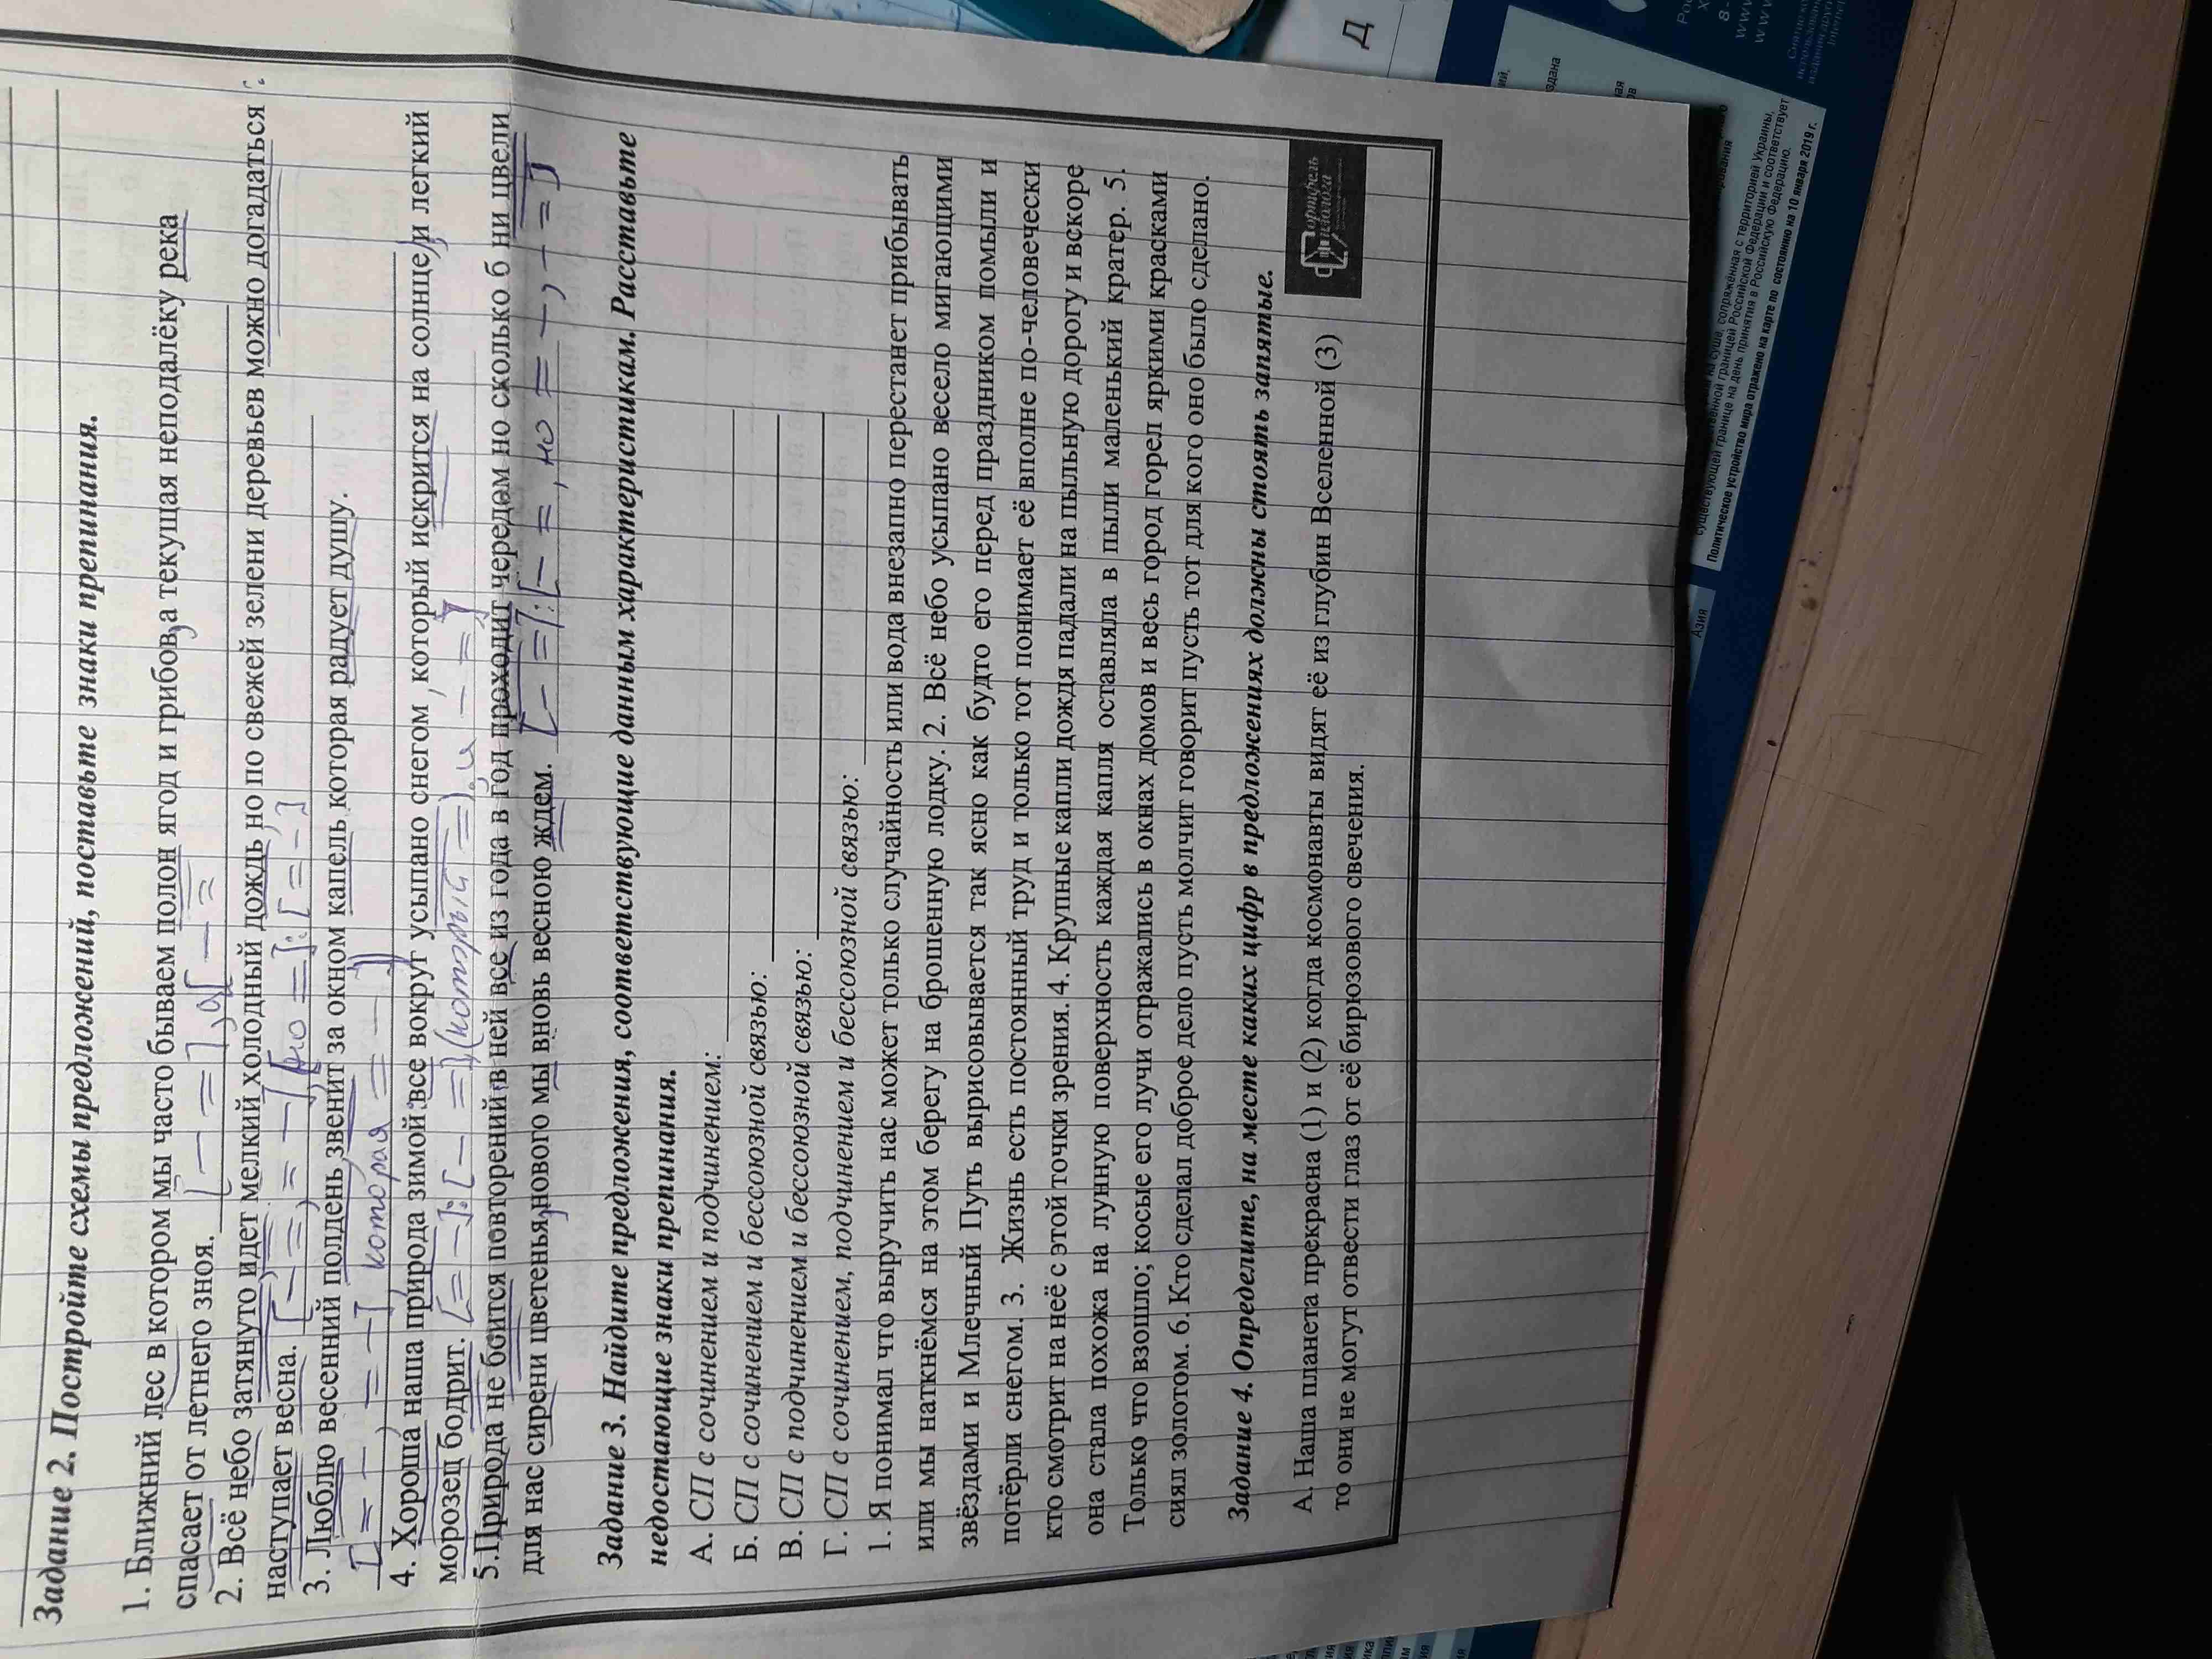 Задание 2. Постройте схемы предложений, поставьте знаки препинания.
1. Ближний лес в котором мы часто бываем полон ягод и грибов, а текущая неподалёку река
спасает от летнего зноя. [ – = ], а[ – =
2. Всё небо затянуто, идет мелкий холодный дождь, но по свежей зелени деревьев можно догадаться :
наступает весна. [ – = ), = – ) [но = ]: [ = – ]
3. Люблю весенний полдень, звенит за окном капель, которая радует душу.
[ = – , = – ] которая = – )
4. Хороша наша природа зимой: все вокруг усыпано снегом , который искрится на солнце, и легкий
морозец бодрит. [ = – ]: [ – = ], (который = ), и – = ]
5.Природа не боится повторений: в ней все из года в год проходит чередом но сколько б ни цвели
для нас сирени цветенья, нового мы вновь весною ждем. [ – = ]: [ – = , но = – , – = ]
Задание 3. Найдите предложения, соответствующие данным характеристикам. Расставьте
недостающие знаки препинания.
А. СП с сочинением и подчинением:
Б. СП с сочинением и бессоюзной связью:
В. СП с подчинением и бессоюзной связью:
Г. СП с сочинением, подчинением и бессоюзной связью:
1. Я понимал что выручить нас может только случайность или вода внезапно перестанет прибывать
или мы наткнёмся на этом берегу на брошенную лодку. 2. Всё небо усыпано весело мигающими
звёздами и Млечный Путь вырисовывается так ясно как будто его перед праздником помыли и
потёрли снегом. 3. Жизнь есть постоянный труд и только тот понимает её вполне по-человечески
кто смотрит на неё с этой точки зрения. 4. Крупные капли дождя падали на пыльную дорогу и вскоре
она стала похожа на лунную поверхность каждая капля оставляла в пыли маленький кратер. 5.
Только что взошло; косые его лучи отражались в окнах домов и весь город горел яркими красками
сиял золотом. 6. Кто сделал доброе дело пусть молчит говорит пусть тот для кого оно было сделано.
Задание 4. Определите, на месте каких цифр в предложениях должны стоять запятые.
А. Наша планета прекрасна (1) и (2) когда космонавты видят её из глубин Вселенной (3)
то они не могут отвести глаз от её бирюзового свечения.
Портфель
филолога
Д
Азия
Политическое устройство мира отражено на карте по состоянию на 10 января 2019 г.